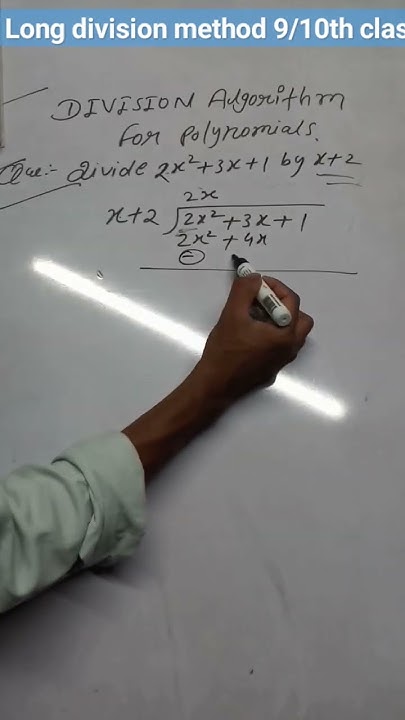 Long division method 9/10th clas
DIVISION Algorithm
for polynomials.
Que:- divide 2x²+3x+1 by x+2
2x
x+2 ) 2x²+3x+1
2x²+4x
⊖